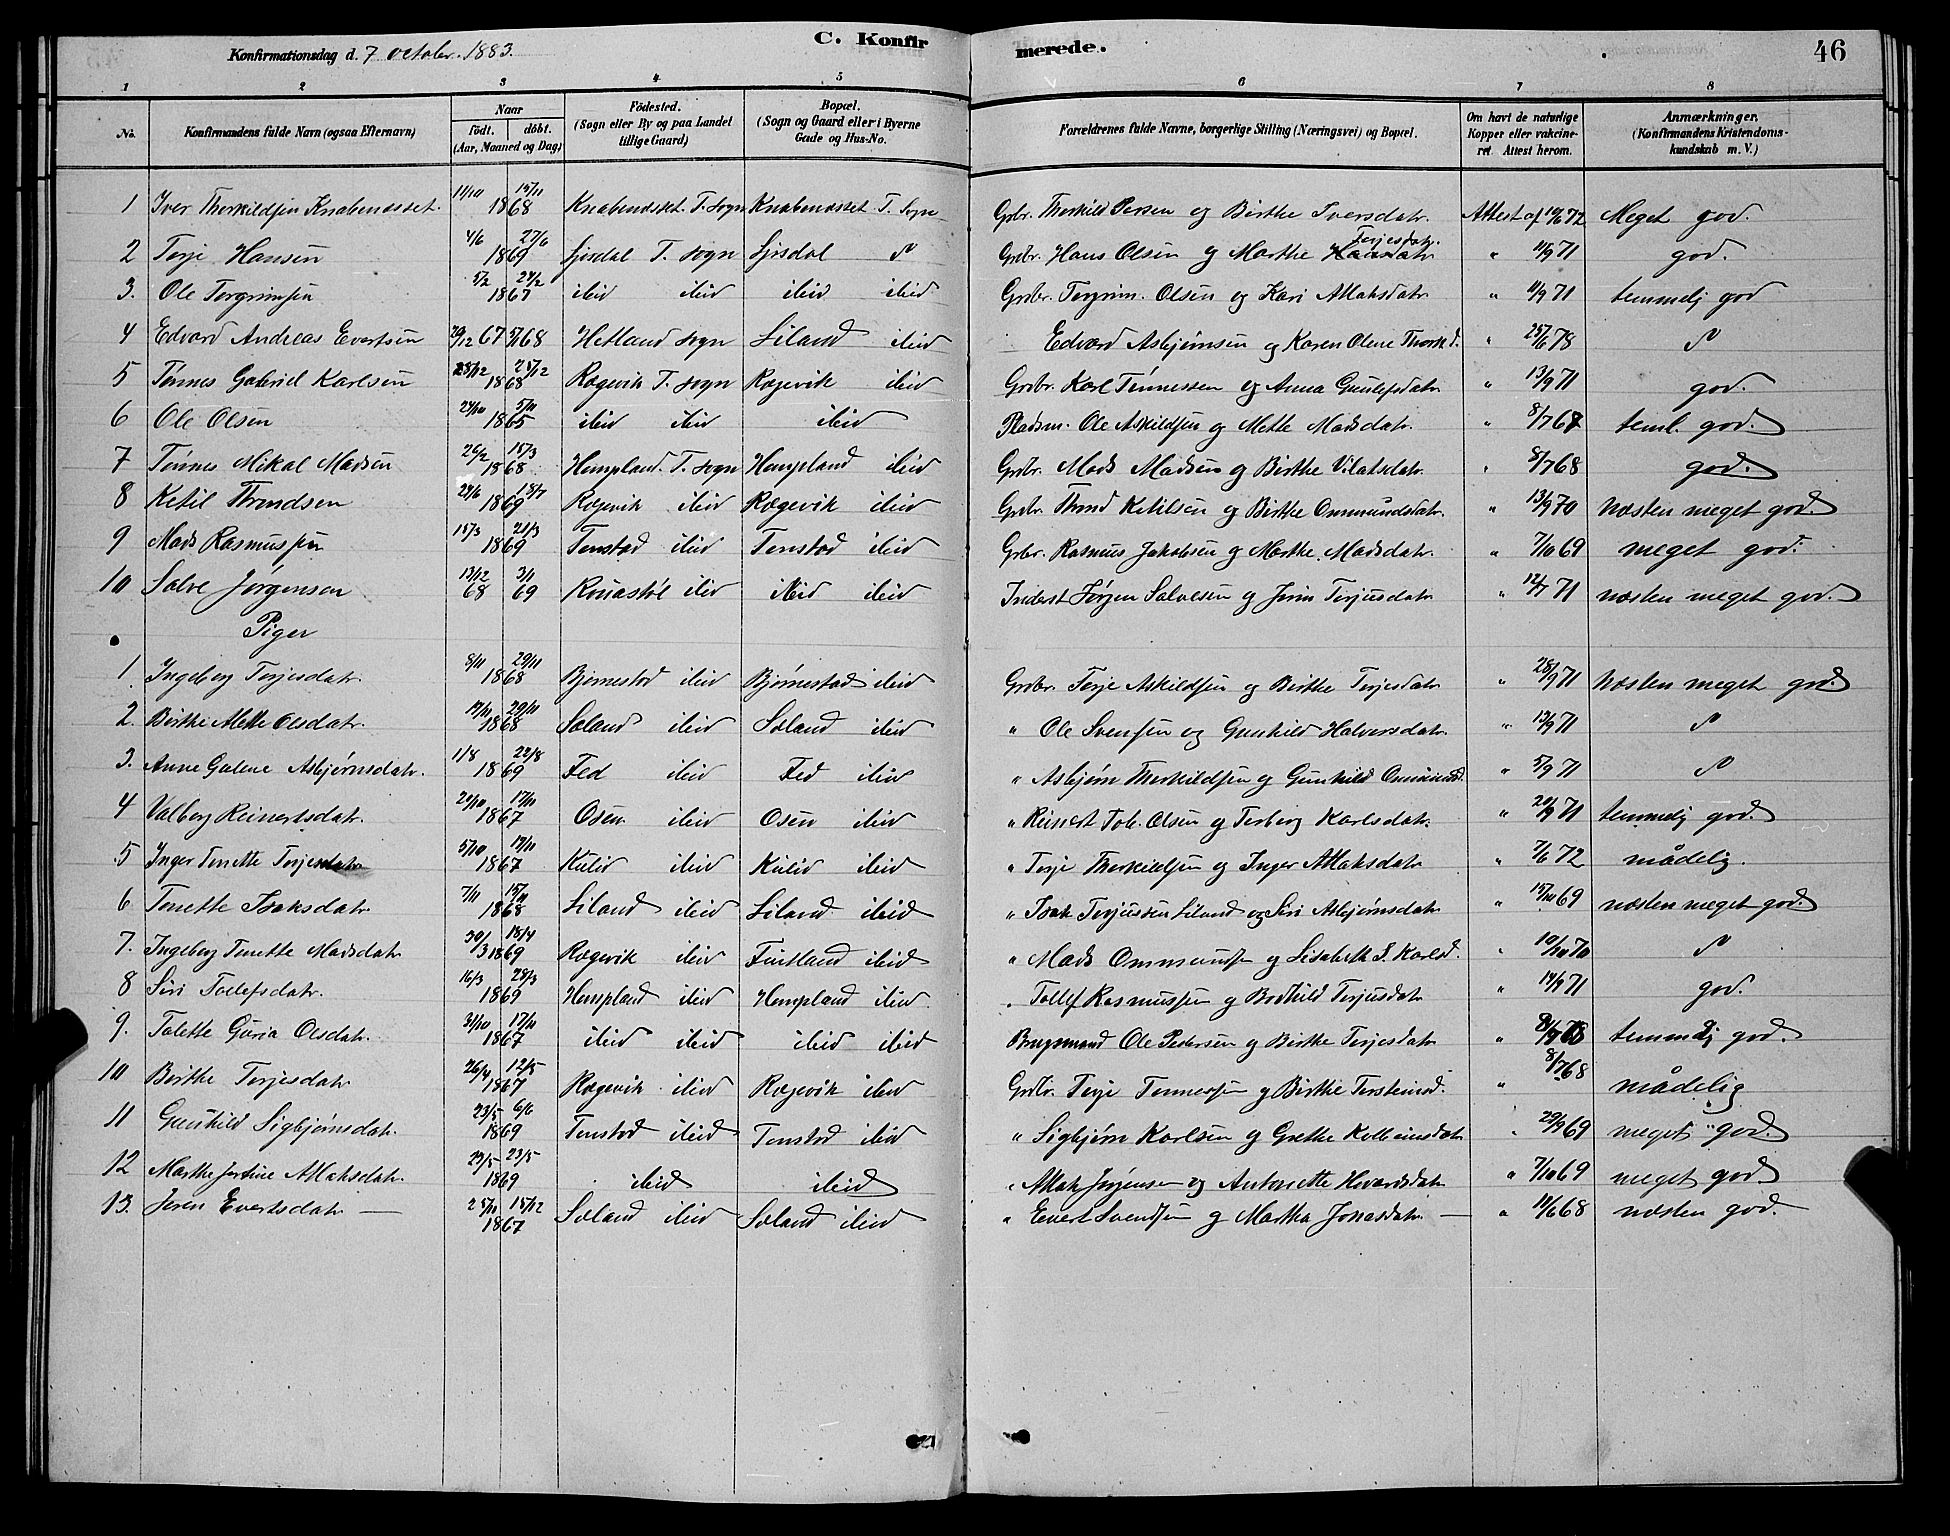 Konfirmationsdag d. 7 October 1883.
C. Konfirmerede.
46
1 2 3 4 5 6 7 8
No. Konfirmandens fulde Navn (ogsaa Efternavn) Naar født. døbt. (Aar, Maaned og Dag) Fødested. (Sogn eller By og paa Landet tillige Gaard.) Bopæl. (Sogn og Gaard eller i Byerne Gade og Hus-No. Forældrenes fulde Navne, borgerlige Stilling (Næringsvei) og Bopæl. Om havt de naturlige Kopper eller vakcineret. Attest herom. Anmærkninger. (Konfirmandens Kristendomskundskab m. V.)
1 Iver Therkildsen Knabenæsset. 11/10 15/11 1868 Knabenæsset. T. Sogn Knabenæsset T. Sogn Grbr. Therkild Persen og Birthe Iversdatr. Attest af 72 Meget god.
2 Terje Hansen 4/6 27/6 1869 Sjisdal T. Sogn Sjisdal " Grbr. Hans Olsen og Marthe Terjesdatr. " 11/9 71 god.
3. Ole Tergrimsen 5/2 24/2 1867 ibid ibid ibid ibid Grbr. Tergrim Olsen og Kari Atlaksdatr " 11/9 71 temmelig god
4 Edvard Andreas Evertsen 29/12 67 5/1 68 Hetland Sogn Liland ibid Edvard Asbjørnsen og Karen Olene " 25/6 78 "
5 Tønnes Gabriel Karlsen 25/12 1868 Rægevik T. Sogn Rægevik ibid Grbr. Karl Tønnessen og Anna Gunlefsdatr " 13/9 71 god.
6 Ole Olsen 24/10 5/11 1865 ibid ibid ibid Pladsm. Ole Askildsen og Mette Madsdatr. " 8/7 67 teml. god.
7 Tønnes Mikal Madsen 26/2 15/3 1868 Hompland. T. Sogn Hompland ibid Grbr. Mads Madsen og Birthe Vilatsdatr. " 8/7 68 god.
8 Ketil Throndsen 24/6 18/7 1869 Rægevik ibid Rægevik ibid Grbr. Thrond Ketilsen og Birthe Ommundsdatr. " 13/9 70 næsten meget god.
9 Mads Rasmussen 15/3 21/3 1869 Tonstad ibid Tonstad ibid Grbr. Rasmus Jakobsen og Marthe Madsdatr. " 7/10 69 meget god.
10 Salve Jørgensen 13/12 68 3/1 69 ibid ibid ibid Inderst Jørgen Salvesen og Terjusdatr " 12/7 71 næsten meget god.
Piger
1. Ingeborg Terjesdatr. 8/11 29/11 1868 Bjørnestad ibid Bjørnestad ibid Grbr. Terje Askildsen og Birthe Terjesdatr " 28/9 71 næsten meget god.
2. Birthe Mette Olsdatr. 29/11 1868 Søland ibid Søland ibid " Ole Svensen og Gunhild Halversdatr. " 13/9 71 "
3. Anne Galene Asbjørnsdatr. 1/8 22/8 1869 Fed ibid Fed ibid " Asbjørn Therkildsen og Gunhild " 5/9 71 "
4 Valborg Reinertsdatr. 20/10 17/11 1867 Osen ibid Osen ibid " Reinert Tob. Olsen og Terborg Karlsdatr. " 20/9 71 temmelig god.
5 Inger Tonette Terjesdatr 5/10 1867 Kulid ibid Kulid ibid " Terje Therkildsen og Inger Atlaksdatr " 7/6 72 mådelig.
6 Tonette Isaksdatr 7/11 15/11 1868 Liland ibid Liland ibid " Isak Terjussen Liland og Siri Asbjørnsdatr " 15/10 69 næsten meget god.
7. Ingeborg Tonette Madsdatr 30/3 18/4 1869 Rægevik ibid Fintland ibid " Mads Ommundsen og Lisabeth S. Karlsd. " 10/10 70 "
8 Siri Tollefsdatr. 16/3 28/3 1869 Hompland ibid Hompland ibid " Tollef Rasmussen og Bodhild Terjusdatr " 14/9 71 god.
9. Tolette Guria Olsdatr. 31/10 17/11 1867 ibid ibid ibid ibid Brugsmand Ole Pedersen og Birthe Terjesdatr " 8/7 68 temmelig god.
10 Birthe Terjesdatr 26/4 12/5 1867 Rægevik ibid Rægevik ibid Grbr. Terje Tønnessen og Birthe Torsteinsd. " 8/7 68 mådelig
11 Gunhild Sigbjørnsdatr. 23/5 6/6 1869 Tonstad ibid Tonstad ibid " Sigbjørn Karlsen og Grethe Kolbeinsdatr " 29/9 69 meget god.
12 Marthe Jortine Atlaksdatr. 23/5 1869 ibid ibid " Atlak Jørgensen og Antonette Hovardsdatr " 7/10 69 meget god
13. Joren Evertsdatr — 25/11 15/12 1867 Søland ibid Søland ibid " Evert Svendsen og Martha Jonasdatr. — " 11/6 68 næsten god.